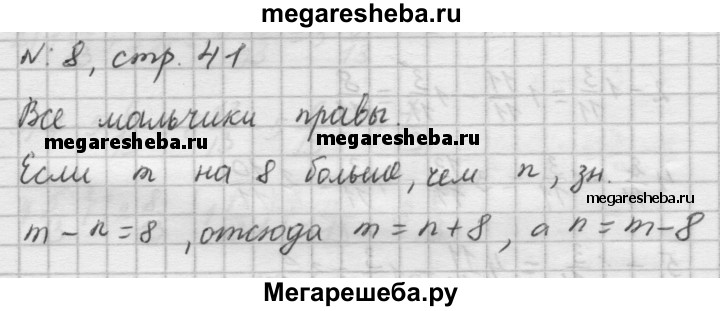 megaresheba.ru
№ 8, стр. 41
megaresheba.ru
Все мальчики правы.
megaresheba.ru
megaresheba.ru
Если m на 8 больше, чем n, зн.
megaresheba.ru
m - n = 8, отсюда m = n + 8, а n = m - 8
Мегарешеба.ру